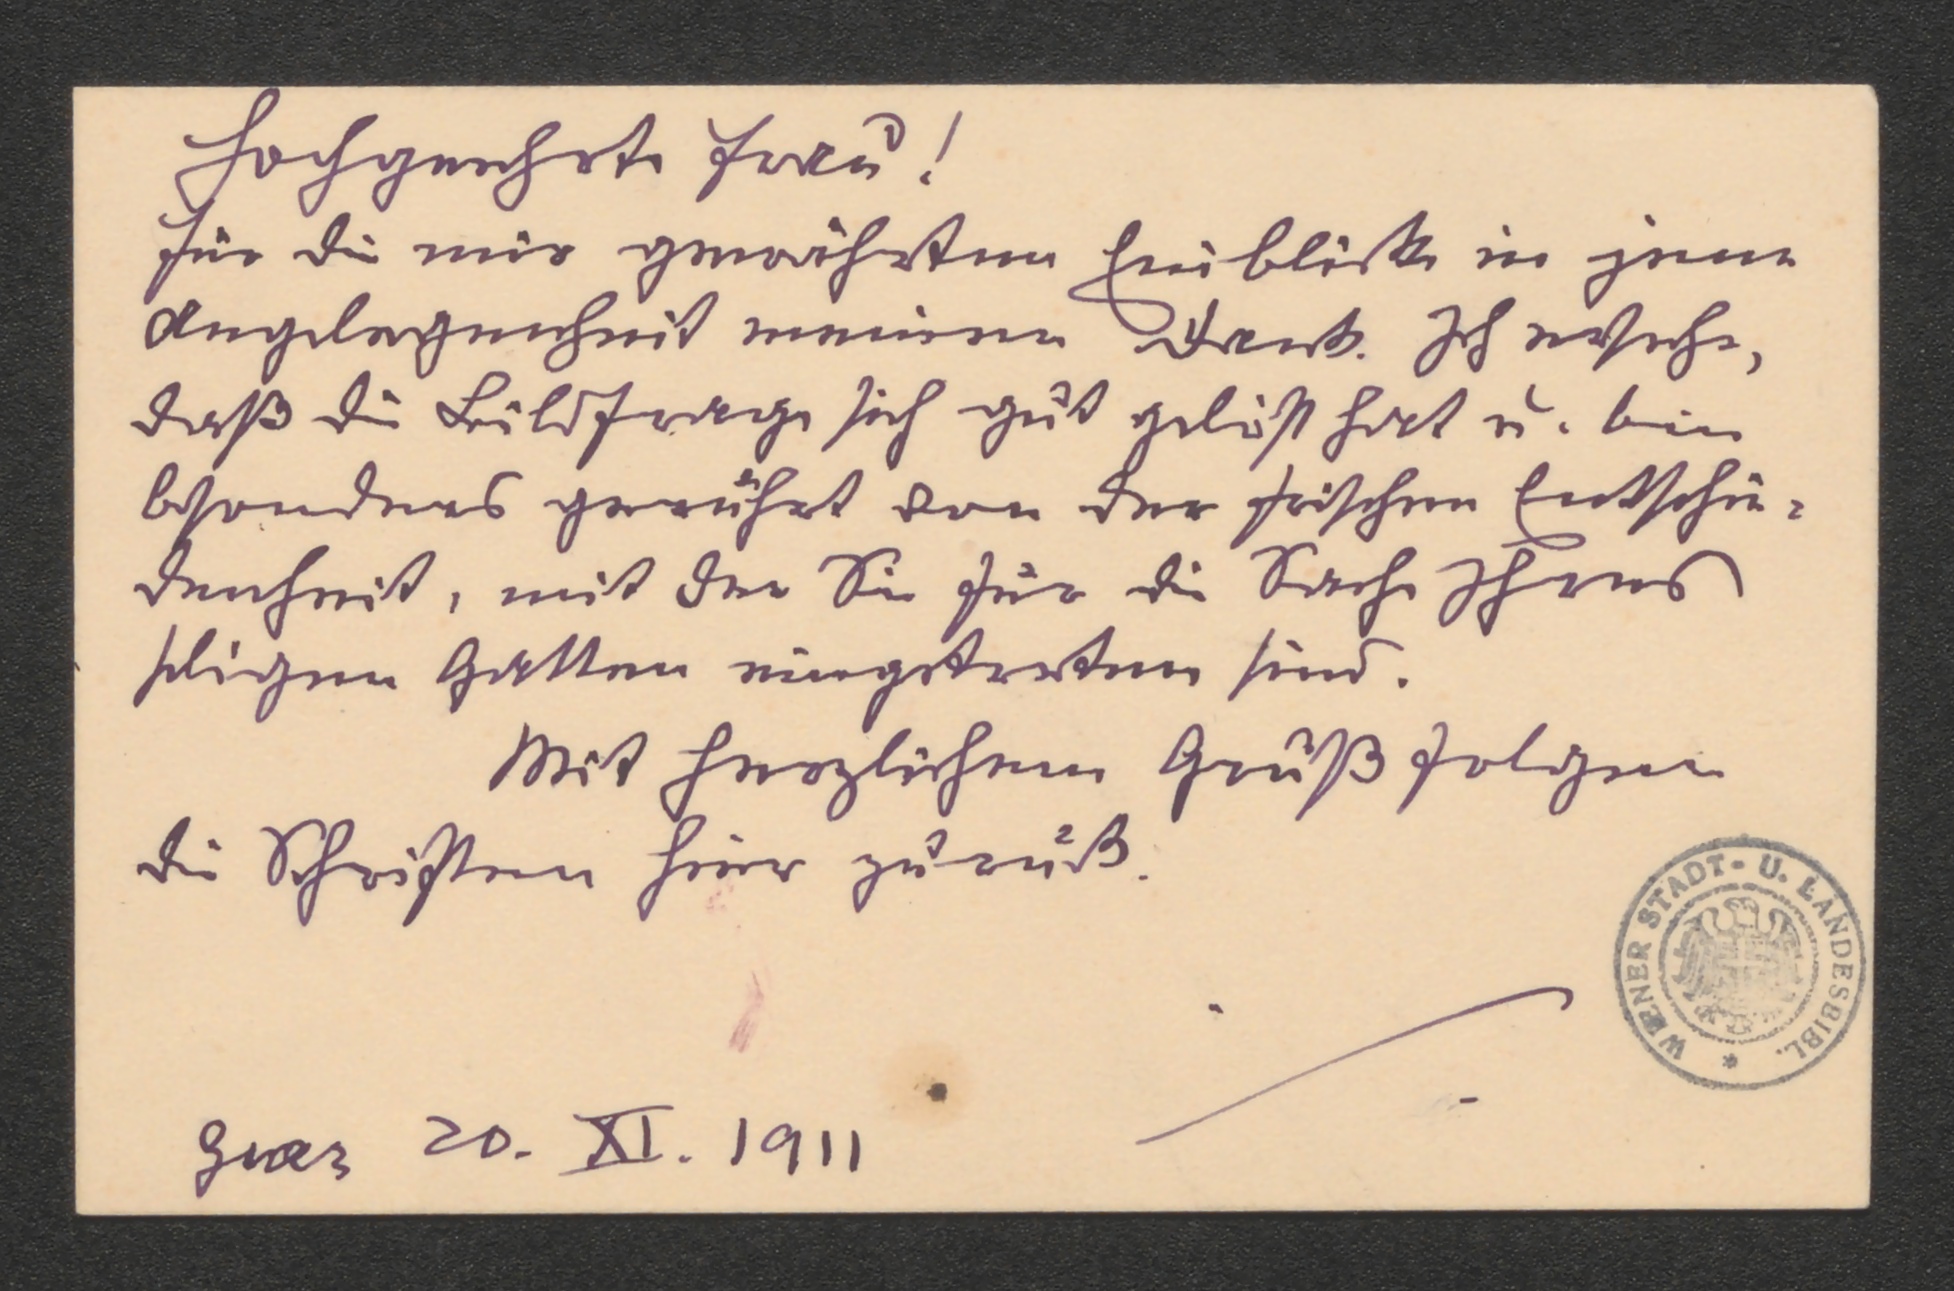 Hochgeehrte Frau!
Für die mir gewährten Einblicke in jene
Angelegenheit meinen Dank. Ich ersehe,
daß die Bildfrage sich gut gelöst hat u. bin
besonders gerührt von der frischen Entschie-
denheit, mit der Sie für die Sache Ihres
seligen Gatten eingetreten sind.
Mit herzlichem Gruß folgen
die Schriften hier zurück.
WIENER STADT- U. LANDESBIBL. *
Graz 20. XI. 1911